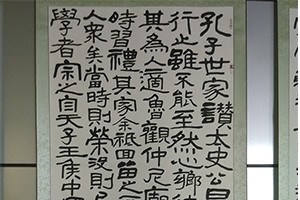 孔子世家讚太史公曰
行止雖不能至然心鄉往
其為人適魯觀仲尼廟
時習禮其家余祗回畱之
人衆矣當時則榮沒則已
學者宗之自天子王侯中